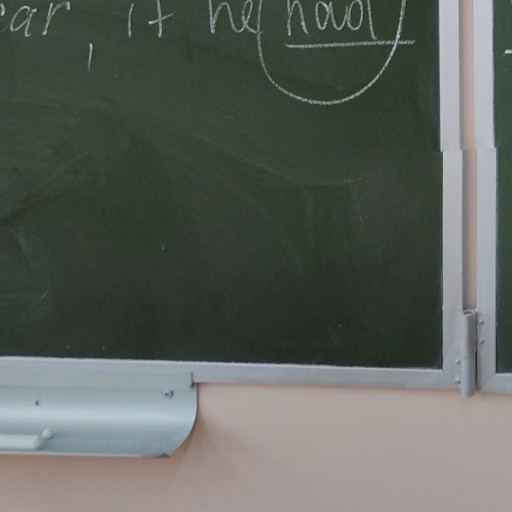 ear, if he had